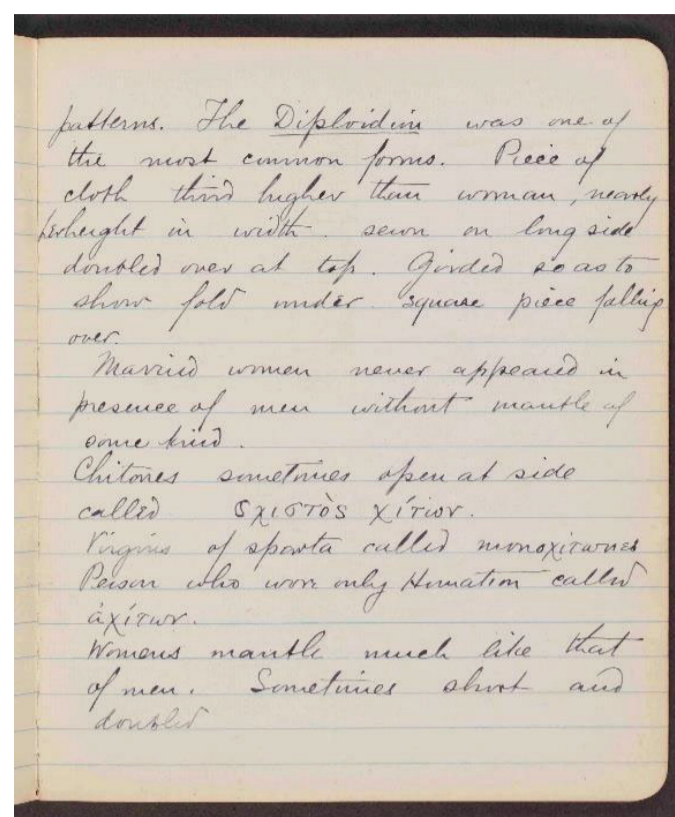 patterns. The Diploidion was one of
the most common forms. Piece of
cloth third higher than woman, nearly
her height in width. sewn on long side
doubled over at top. Girded so as to
show fold under square piece falling
over.
Married women never appeared in
presence of men without mantle of
some kind.
Chitones sometimes open at side
called σχιστὸς χίτιον.
Virgins of sparta called μονοχιτωνες
Person who wore only Himation called
ἀχίτων.
Womens mantle much like that
of men. Sometimes short and
doubled